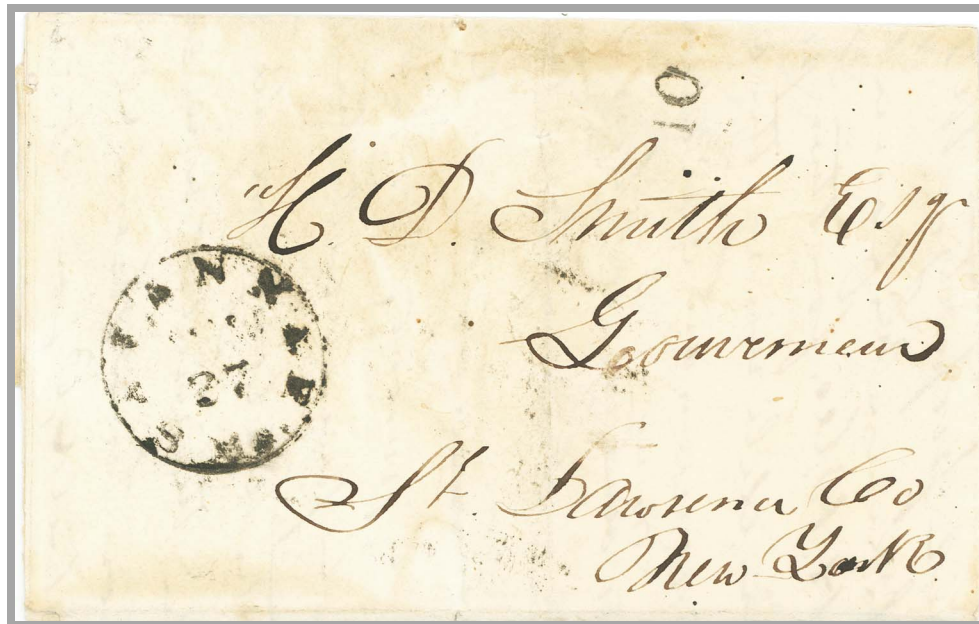 10
H. D. Smith Esqr
Gouverneur
St. Lawrence Co
New York
SAVANNAH
27